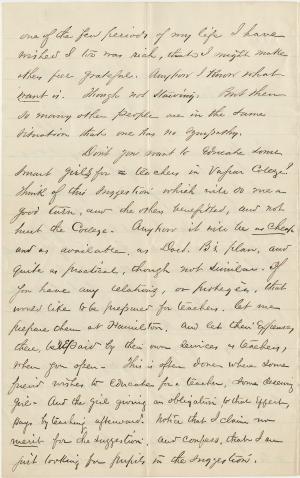 one of the few periods of my life I have
wished I too was rich, that I might make
others feel grateful. Anyhow I know what
want is. Though not starving. But then
so many other people are in the same
situation that one has no sympathy.
Don't you want to educate some
smart girls for teachers in Vassar College?
Think of this suggestion which will do me a
good turn, and the others benefitted, and not
hurt the College. Anyhow it will be as cheap
and as available, as Doct. B's plan, and
quite as practical, though not similar. If
you have any relations, or protegies, that
would like to be prepared for teachers. let me
prepare them at Hamilton. And let their expenses,
there, be paid by their own services as teachers,
when you open. This is often done when some
friend wishes to educate for a teacher, some deserving
girl. And the girl giving an obligation to that effect,
pays by teaching afterward. Notice that I claim no
merit for the suggestion. and confess, that I am
just looking for pupils in the suggestion.